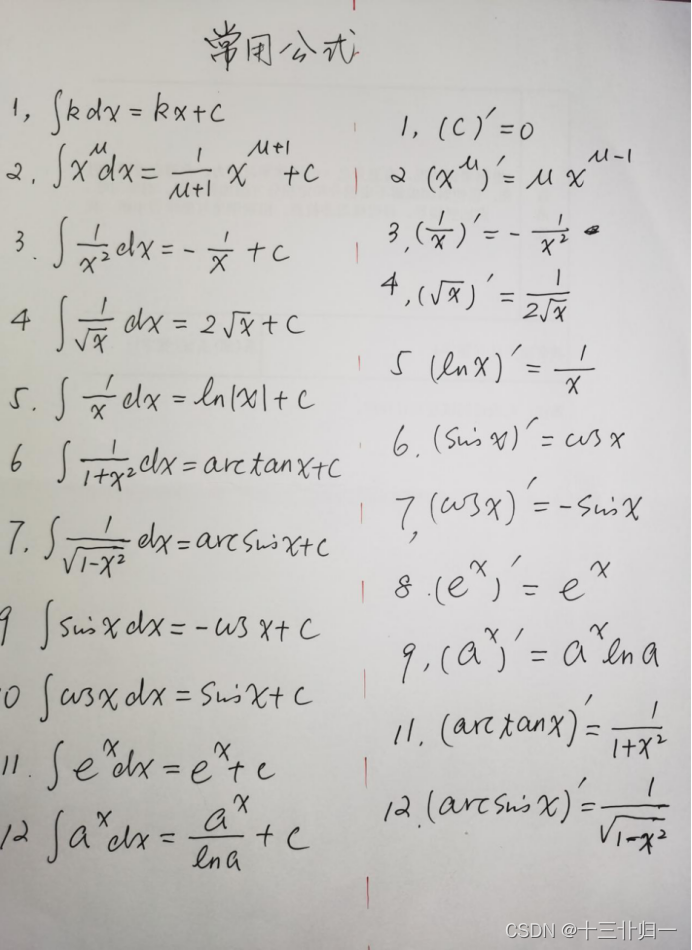 常用公式
1, ∫kdx = kx+C
2. ∫x^μdx = 1/(μ+1) x^(μ+1) +C
3. ∫1/x² dx = - 1/x + C
4 ∫1/√x dx = 2√x + C
5. ∫1/x dx = ln|x| + C
6 ∫1/(1+x²) dx = arctanx+C
7. ∫1/√(1-x²) dx = arcsinx+C
9 ∫sinxdx = -cosx+C
0 ∫cosxdx = sinx+C
11. ∫e^xdx = e^x+C
12 ∫a^xdx = a^x/lna + C
1, (C)′=0
2 (x^μ)′= μx^(μ-1)
3, (1/x)′= - 1/x²
4, (√x)′= 1/(2√x)
5 (lnx)′= 1/x
6. (sinx)′= cosx
7, (cosx)′= -sinx
8. (e^x)′= e^x
9, (a^x)′= a^xlna
11. (arctanx)′= 1/(1+x²)
12. (arcsinx)′= 1/√(1-x²)
CSDN @十三卝归一